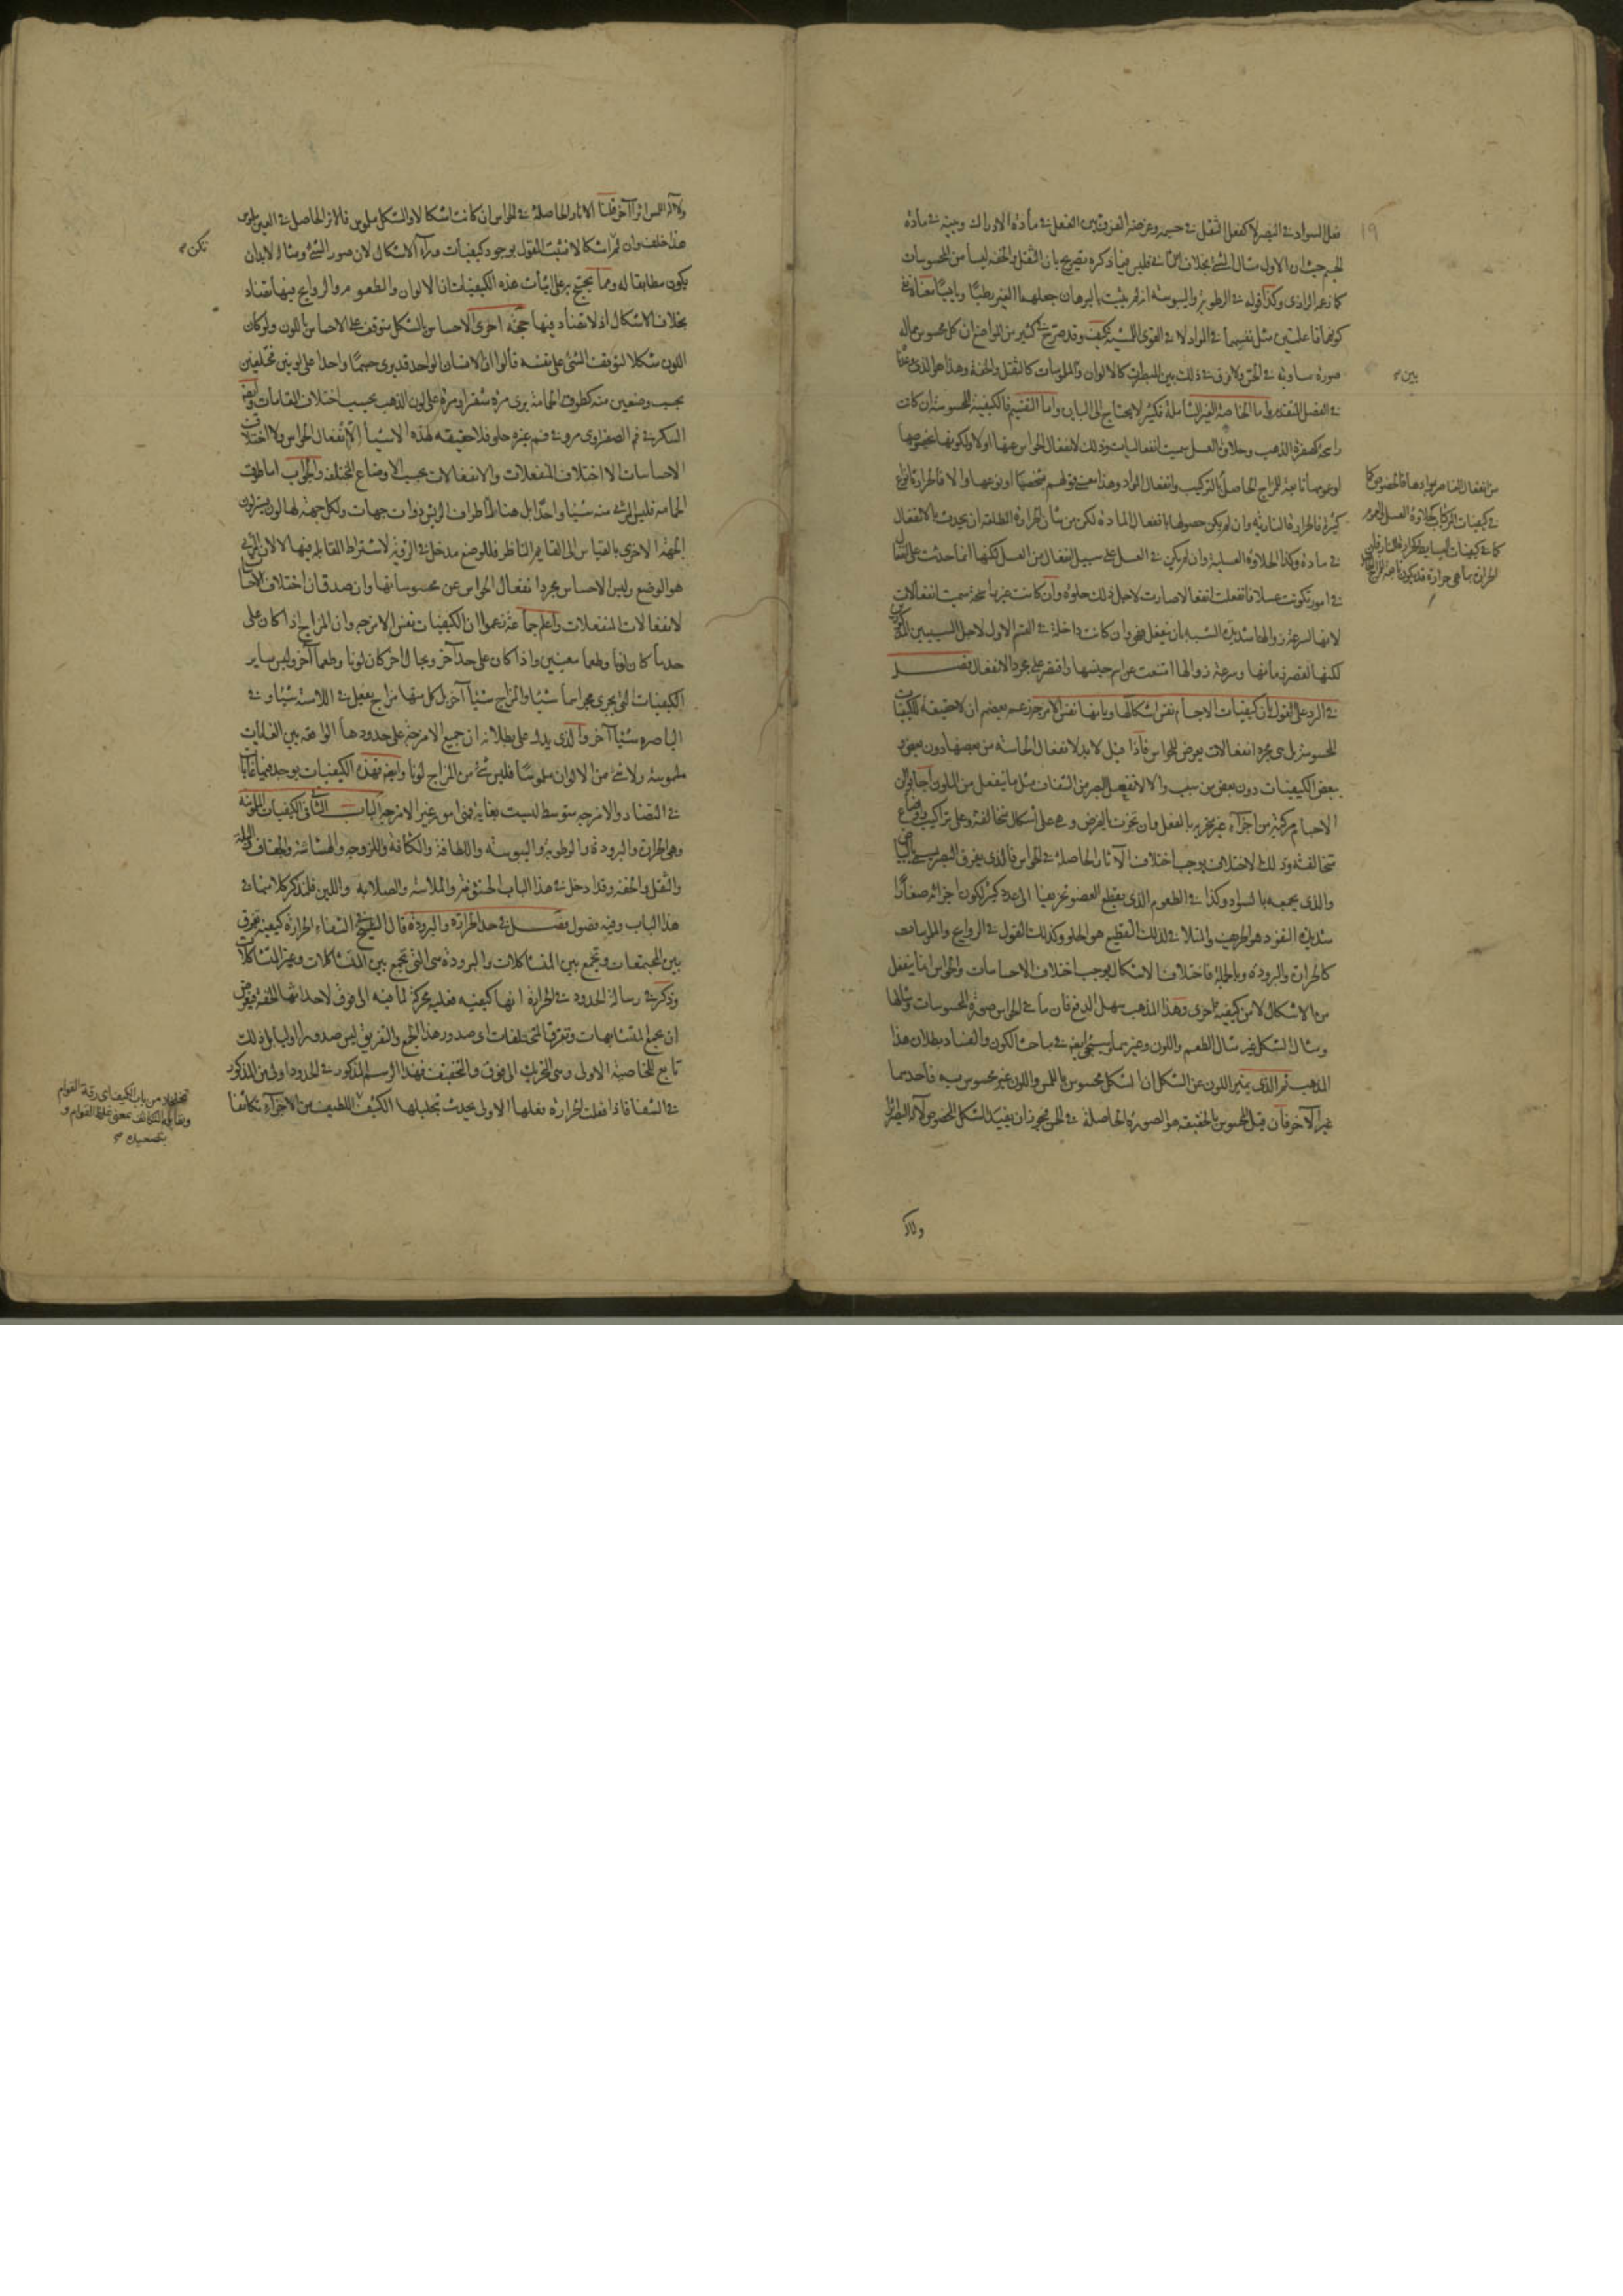 ١٩
فعل السواد في البصر لا كفعل الثقل في جسمه وغرضه الفرق بين الفعل في مادة الادراك وبينه في مادة
الجسم حيث ان الاول مثال الشيء بخلاف الثاني فليس فيما ذكره تصريح بان الثقل والخفة ليسا من المحسوسات
كما زعم الرازي وكذا قوله في الرطوبة واليبوسة انه لم يثبت بالبرهان جعلهما الغير رطبا ويابسا معناه نفي
كونهما فاعلتين مثل نفسهما في المواد لا في القوى اللمسية كيف وقد صرح في كثير من المواضع ان كل محسوس فله
صورة مساوية في الحس ولا فرق في ذلك بين المبصرات كالالوان والملموسات كالثقل والخفة وهذا هو الذي
بين
في الفصل المتقدم واما الخاصة الغير الشاملة فكثير لا يحتاج الى البيان واما التقسيم فالكيفية المحسوسة ان كانت
راسخة كصفرة الذهب وحلاوة العسل سميت انفعاليات وذلك لانفعال الحواس عنها اولا ولكونها بخصوصها
او عمومها تابعة للمزاج الحاصل بالتركيب وانفعال المواد وهذا معنى قولهم بشخصها او نوعها والا فالحرارة انواع
كثيرة فالحرارة النارية وان لم يكن حصولها بانفعال المادة لكن من شان الحرارة المطلقة ان يحدث بالانفعال
في مادة وكذا الحلاوة العسلية وان لم يكن في العسل على سبيل انفعال من العسل لكنها انما حدثت على
في امور تكونت عسلا فانفعلت انفعالا صارت لاجل ذلك حلوة وان كانت غير راسخة سميت انفعالات
لانها لسرعة زوالها شديدة الشبه بان ينفعل فهي وان كانت داخلة في القسم الاول لاجل السببين
لكنها لقصر زمانها وسرعة زوالها امتنعت عن اسم جنسها واقتصر على مجرد الانفعال فصل
في الرد على القول بان كيفيات الاجسام نفس اشكالها وبانها نفس الامزجة زعم بعضهم ان لا حقيقة للكيفيات
المحسوسة بل هي مجرد انفعالات يعرض للحواس فاذا قيل لابد لانفعال الحاسة من بعضها دون بعض
ببعض الكيفيات دون بعض من سبب والا لانفعل البصر من الشفاف مثل ما ينفعل من الملون اجابوا
الاجسام مركبة من اجزاء غير متجزية بالفعل وان تجزت بالفرض وهي على اشكال متخالفة وعلى تراكيب واوضاع
متخالفة وذلك الاختلاف يوجب اختلاف الآثار الحاصلة في الحواس فالذي يفرق البصر يسمى بالبياض
والذي يجمعه بالسواد وكذا في الطعوم الذي يقطع العضو تقطيعا الى عدد كثير لكون اجزائه صغارا
شديدة النفوذ هو الحريف والمتلافي لذلك التقطيع هو الحلو وكذلك القول في الروايح والملموسات
كالحرارة والبرودة وبالجملة فاختلاف الاشكال يوجب اختلاف الاحساسات والحواس انما ينفعل
من الاشكال لا من كيفية اخرى وهذا المذهب سهل الدفع فان ما في الحواس صورة المحسوسات ومثالها
ومثال الشكل غير مثال الطعم واللون وغيرهما وسيجيء ايضا في مباحث الكون والفساد بطلان هذا
المذهب ثم الذي يميز اللون عن الشكل ان الشكل محسوس باللمس واللون غير محسوس به فاحدهما
غير الآخر فان قيل المحسوس بالحقيقة هو الصورة الحاصلة في الحس فيجوز ان يفيد الشكل المخصوص لآلة البصر اثرا
ولآلة
من انفعال العناصر بموادها فالخصوص كما
في كيفيات المركبات كحلاوة العسل والعموم
كما في كيفيات البسايط كحرارة النار فان
الحرارة بما هي حرارة قد يكون تابعة للمزاج
ولآلة اللمس اثرا آخر قلنا الآثار الحاصلة في الحواس ان كانت اشكالا والشكل ملموس فالاثر الحاصل في العين ملموس
هذا خلف وان لم يكن اشكالا فثبت القول بوجود كيفيات وراء الاشكال لان صور الشيء ومثاله لابد ان
يكن
يكون مطابقا له ومما يحتج به على اثبات هذه الكيفيات ان الالوان والطعوم والروايح فيها تضاد
بخلاف الاشكال اذ لا تضاد فيها حجة اخرى الاحساس بالشكل متوقف على الاحساس باللون ولو كان
اللون شكلا لتوقف الشيء على نفسه قالوا ان الانسان الواحد قد يرى جسما واحدا على لونين مختلفين
بحسب وضعين منه كطوق الحمامة يرى مرة شقرا ومرة على لون الذهب بحسب اختلاف المقامات وايضا
السكر في فم الصفراوي مر وفي فم غيره حلو فلا حقيقة لهذه الاشياء الا انفعال الحواس ولا اختلاف
الاحساسات الا اختلاف المنفعلات والانفعالات بحسب الاوضاع المختلفة والجواب اما طوق
الحمامة فليس المرئي منه شيئا واحدا بل هناك اطراف الريش ذوات جهات ولكل جهة لها لون
الجهة الاخرى بالقياس الى القايم الناظر فللوضع مدخل في الرؤية لاشتراط المقابلة فيها لا لان المرئي
هو الوضع وليس الاحساس مجرد انفعال الحواس عن محسوساتها وان صدق ان اختلاف الاحساسات
لانفعالات المنفعلات واعلم ان جماعة زعموا ان الكيفيات نفس الامزجة وان المزاج اذا كان على
حد ما كان لونا وطعما معينين واذا كان على حد آخر وبحال آخر كان لونا وطعما آخر وليس ساير
الكيفيات التي يجري مجراهما شيئا والمزاج شيئا آخر بل كل منها مزاج يفعل في اللامسة شيئا وفي
الباصرة شيئا آخر والذي يدل على بطلانه ان جميع الامزجة على حدودها الواقعة بين الغايات
ملموسة ولا شيء من الالوان ملموسا فليس شيء من المزاج لونا وايضا فهذه الكيفيات يوجد فيها غايات
في التضاد والامزجة متوسطة ليست بغاية فهي امور غير الامزجة الباب الثاني في الكيفيات الملموسة
وهي الحرارة والبرودة والرطوبة واليبوسة واللطافة والكثافة واللزوجة والهشاشة والجفاف والبلة
والثقل والخفة وقد ادخل في هذا الباب الخشونة والملاسة والصلابة واللين فلنذكر كلامنا في
هذا الباب وفيه فصول فصل في حد الحرارة والبرودة قال الشيخ في الشفاء الحرارة كيفية تفرق
بين المختلفات وتجمع بين المتشاكلات والبرودة هي التي تجمع بين المتشاكلات وغير المتشاكلات
وذكر في رسالة الحدود في الحرارة انها كيفية فعلية محركة لما فيه الى فوق لاحداثها الخفة فيعرض
ان تجمع المتشابهات وتفرق المختلفات اي صدور هذا الجمع والتفريق ليس صدورا اوليا بل ذلك
تابع للخاصية الاولى وهي التحريك الى فوق والتخفيف فهذا الرسم المذكور في الحدود اولى من المذكور
في الشفا فاذا فعلت الحرارة فعلها الاولى يحدث بتحليلها الكثيف اللطيف من الاجزاء تكاثفا
من باب الكيف اي رقة القوام
ويقابله التكاثف بمعنى غلظ القوام و
بتصعيده